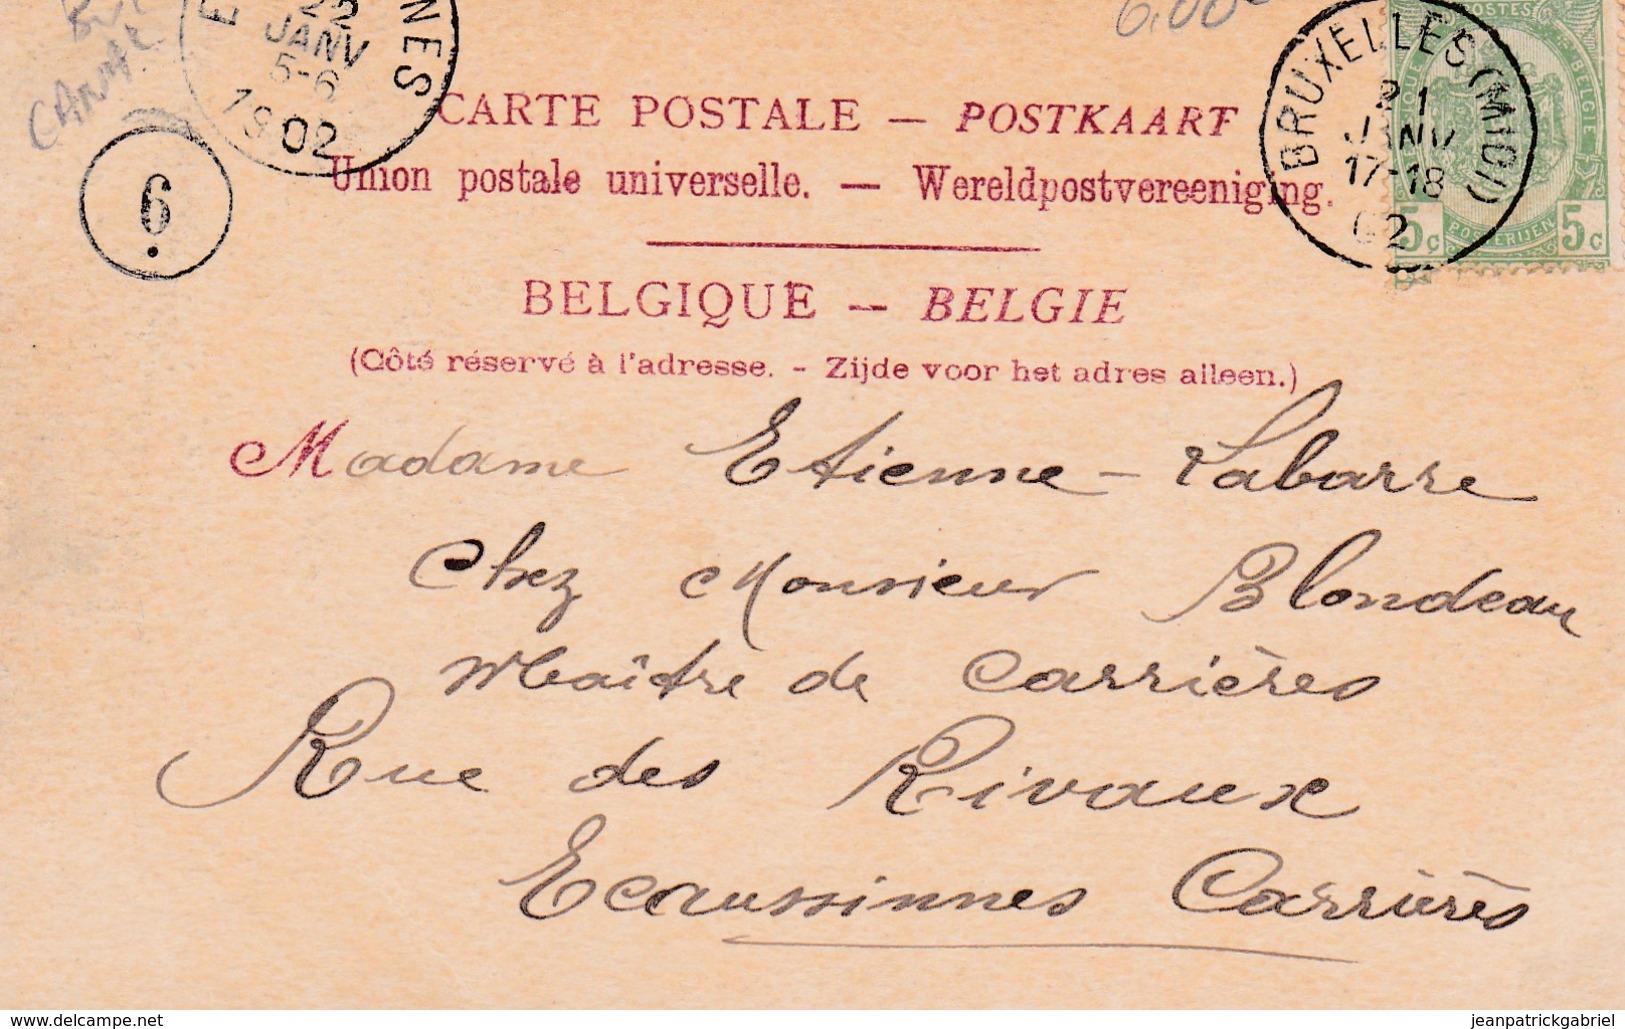 22
JANV
5-6
1902
NES
6.00
BRUXELLES (MIDI)
21
JANV
17-18
02
POSTES
BELGIE
POSTERIJEN
5c 5c
6
CARTE POSTALE — POSTKAART
Union postale universelle. — Wereldpostvereeniging.
BELGIQUE — BELGIE
(Côté réservé à l'adresse. - Zijde voor het adres alleen.)
Madame Etienne-Labarre
Chez Monsieur Blondeau
Maître de Carrières
Rue des Rivaux
Ecaussinnes Carrières
www.delcampe.net
jeanpatrickgabriel